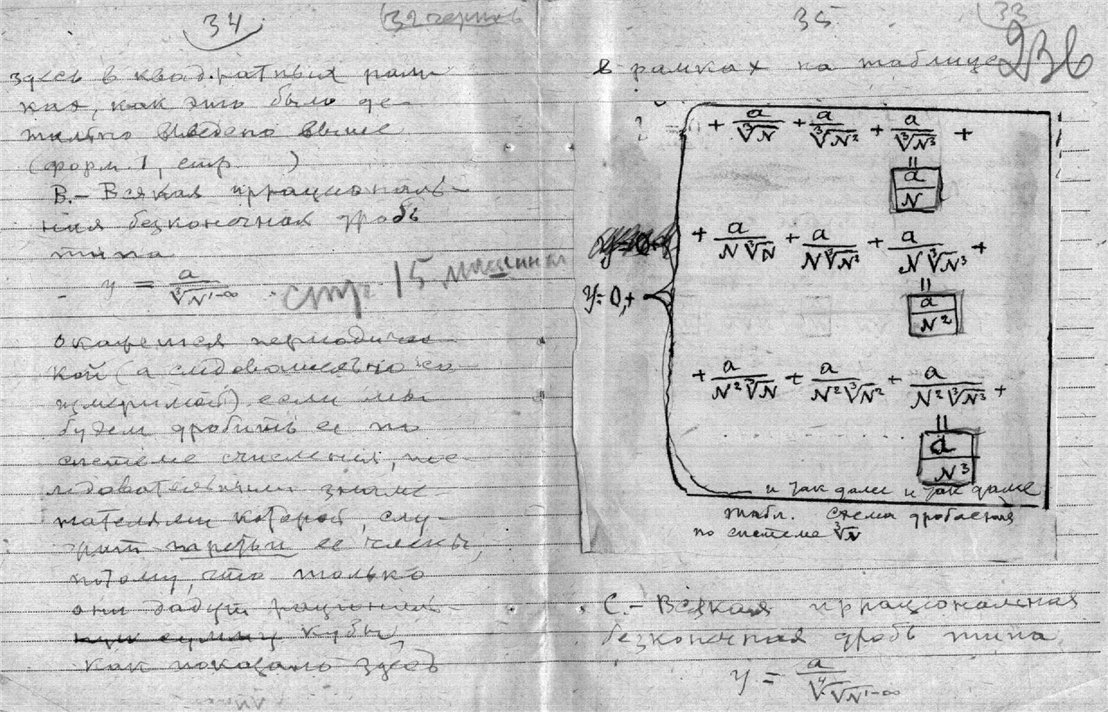 34
32 чернов
здесь в квадратных рам-
ках, как это было де-
тально выведено выше
(форм. 1, стр. )
В.- Всякая иррациональ-
ная безконечная дробь
типа
y = a / ∛N^1-∞
стр. 15 машиноп
окажется периодичес-
кой (а следовательно со-
измеримой) если мы
будем дробить ее по
системе счисления, пос-
ледовательными знаме-
нателями которой, слу-
жит третьи ее члены,
потому, что только
они дадут рациональ-
кубы,
как показано здесь
35
33
236
в рамках на таблице
+ a/∛N + a/∛N² + a/∛N³ +
=
a/N
+ a/N∛N + a/N∛N² + a/N∛N³ +
y=0,+
=
a/N²
+ a/N²∛N + a/N²∛N² + a/N²∛N³ +
=
a/N³
и так далее и так далее
табл. схема дробления
по системе ∛N
С.- Всякая иррациональная
безконечная дробь типа
y = a / ∜N^1-∞